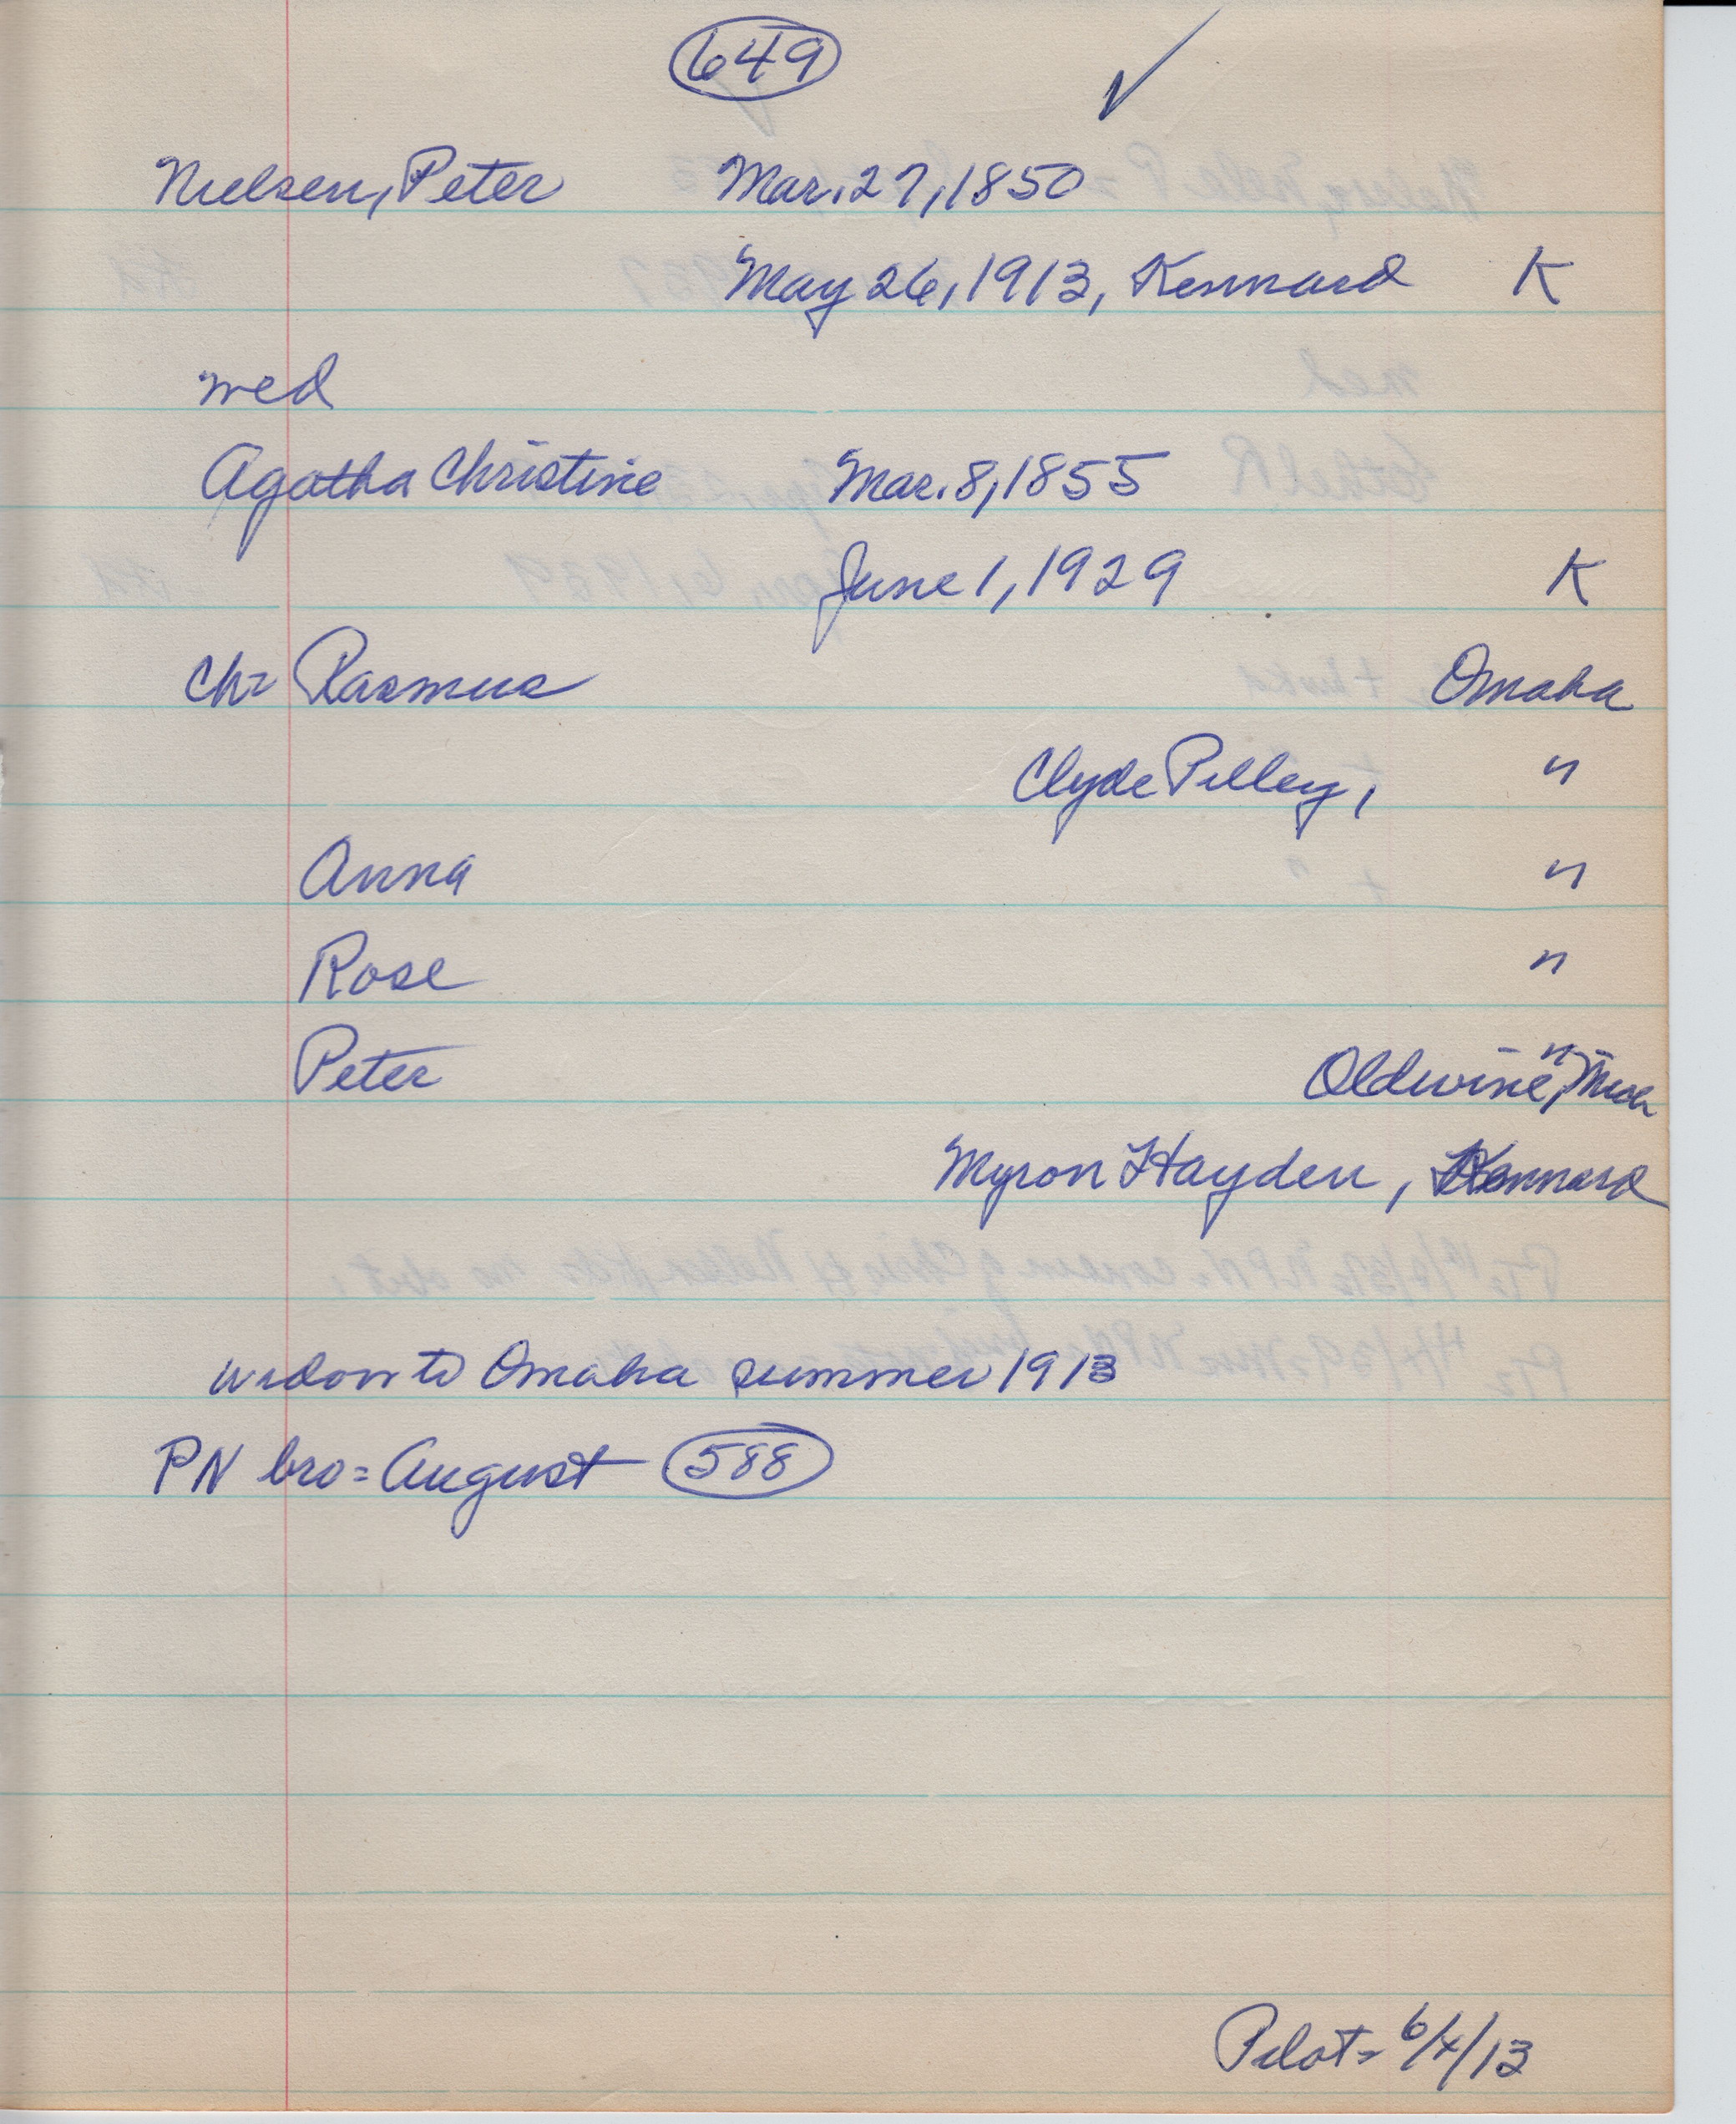 649 ✓
Nielsen, Peter Mar. 27, 1850
May 26, 1913, Kennard K
med
Agatha Christine Mar. 8, 1855
June 1, 1929 K
Ch= Rasmus Omaha
Clyde Pilley, "
Anna "
Rose "
Peter "
Oldwine, Mich
Myron Hayden, Kennard
widow to Omaha summer 1913
PN bro= August 588
Pilot= 6/4/13